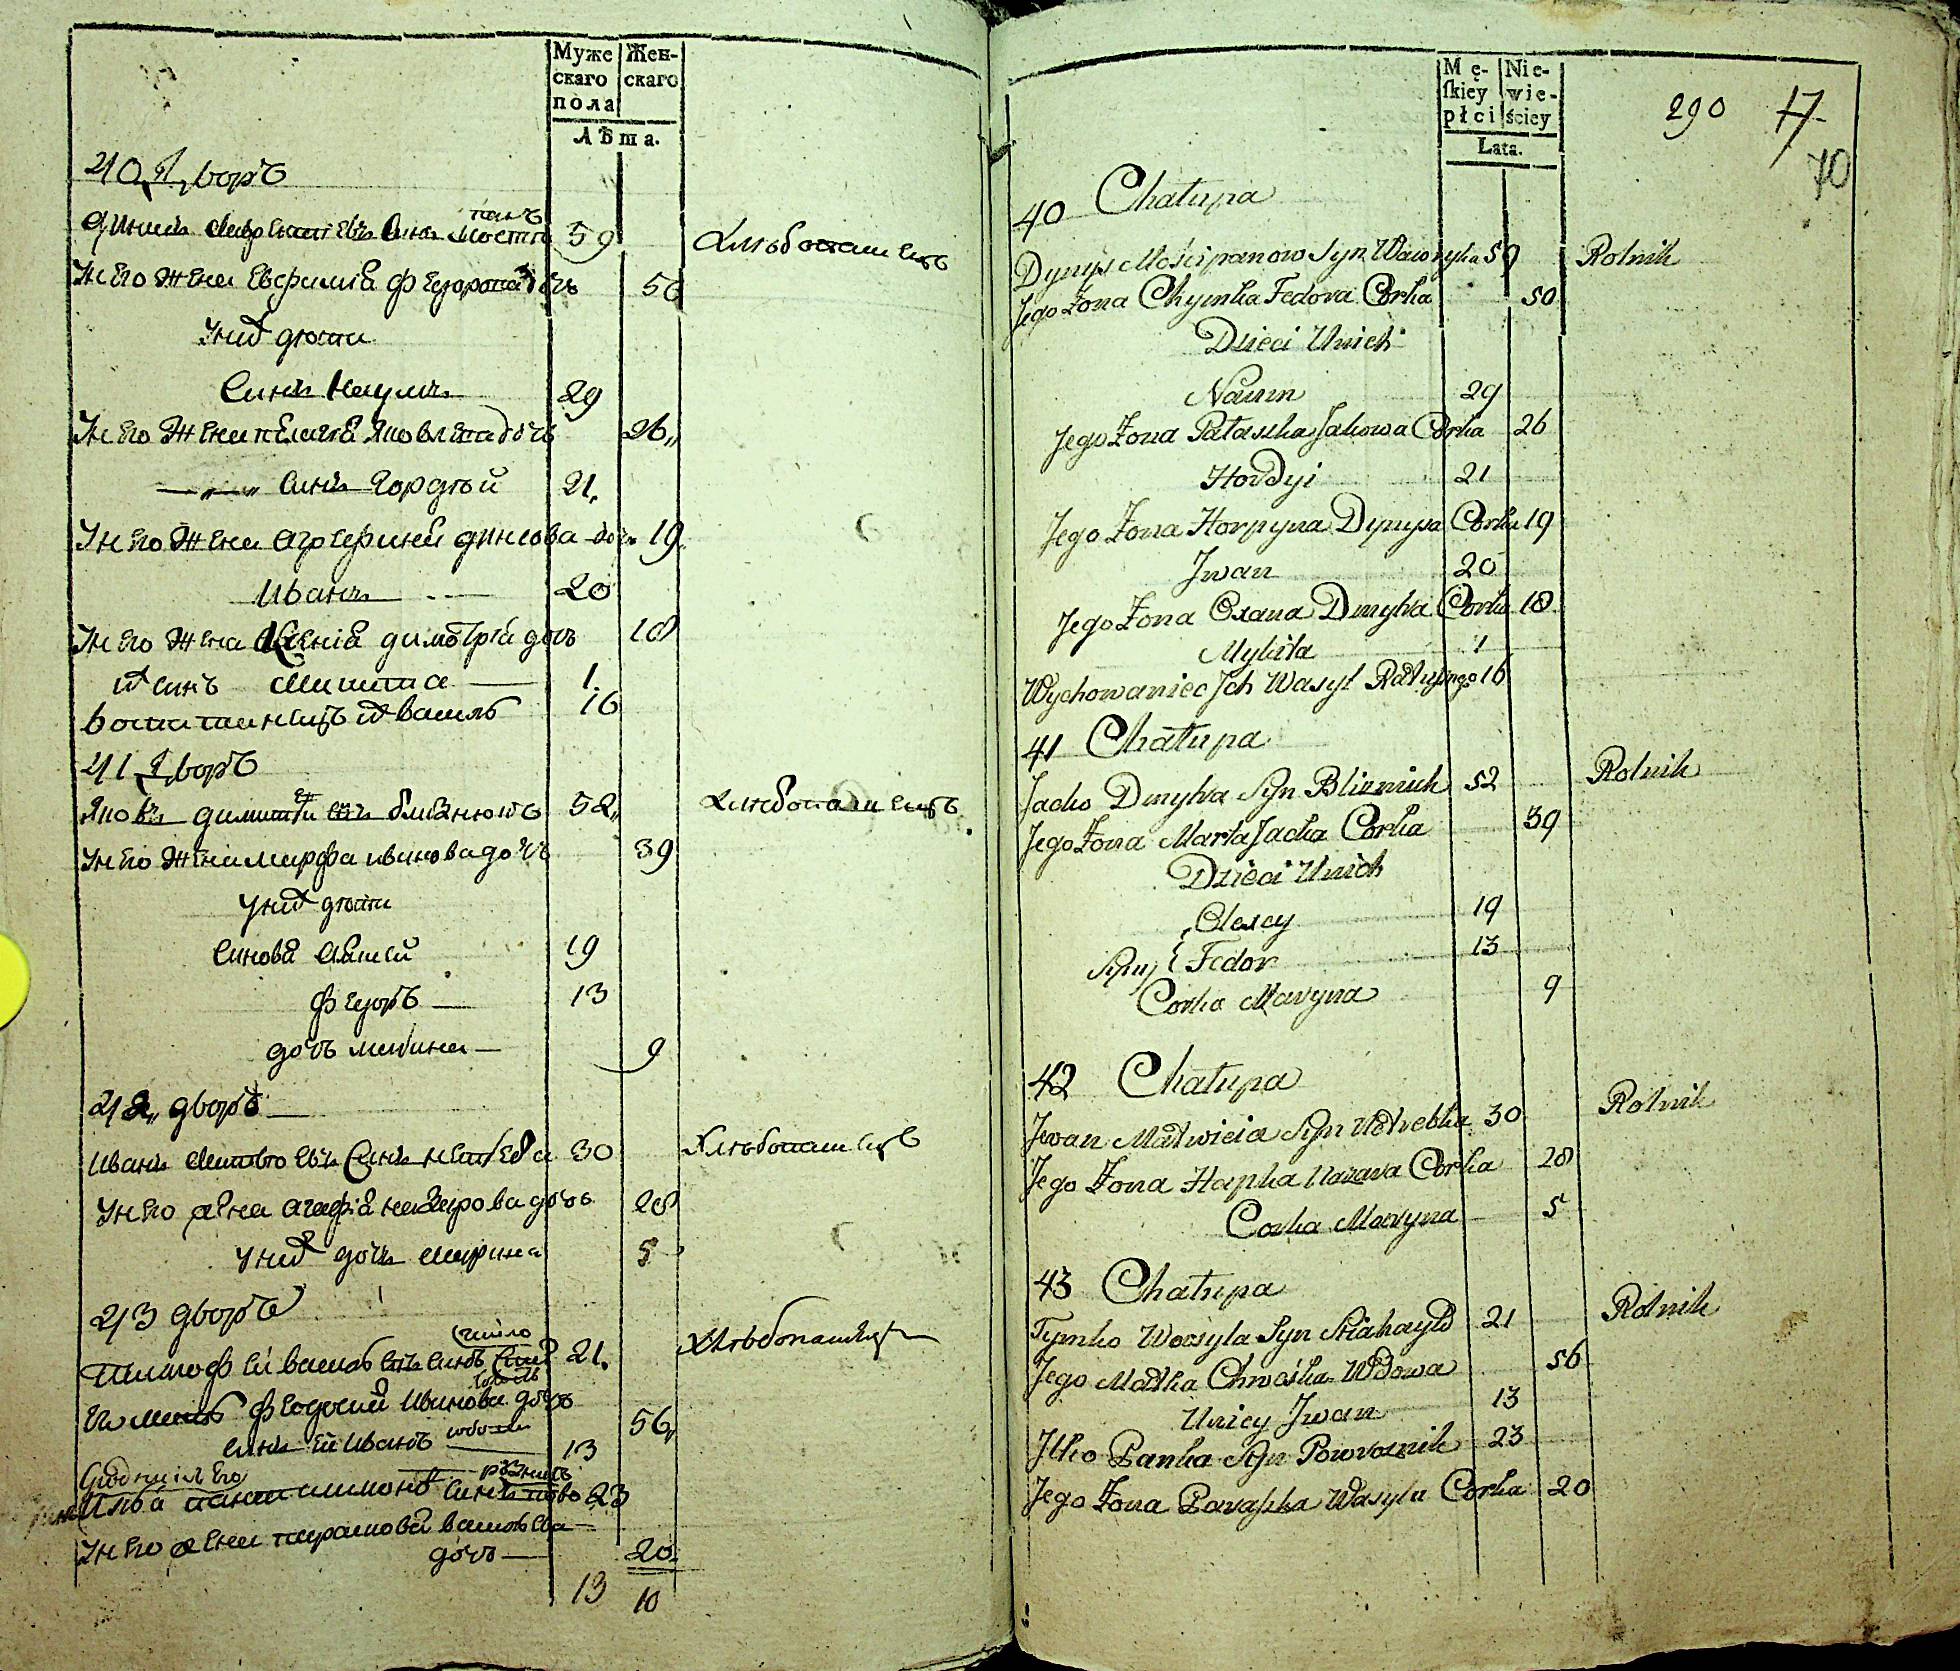 Муже
скаго
пола
Жен-
скаго
Лѣта.
40 Дворъ
панъ
Динис Лаврентіевъ Синъ Мости 59
Хлѣбопашецъ
У него жена Евфимія Федорова дочь 50
У них дѣти
Синъ Наумъ 29
У него жена Пелагія Яковлева дочь 26
— „ — „ Синъ Гордѣй 21.
У него жена Агрефина Динисова дочь 19.
Иванъ 20
У него жена Ксенія Димитрія дочь 18
их синъ Микита — 1.
воспитанецъ их Василь 16
41 Дворъ
Яковъ Димитріевъ Близнюкъ 52„
Хлѣбопашецъ
У него жена Марфа Иванова дочь 39
У них дѣти
Синовя Алексей 19
Федоръ — 13
дочь Марина — 9
42„ дворъ —
Иванъ Матвѣевъ Синъ 30
Хлѣбопашецъ
У него жена Агафія Назарова дочь 28
У них дочь Марина 5
43 дворъ
Тимофей Васильевъ синъ 21.
Хлѣбопашецъ
Его мать Феодосия Иванова дочь
56„
синъ ей Иванъ 13
Илья синъ 23
У него жена Параскова Васильева
дочь — 20.
13 10
Mę-
skiey
płci
Nie-
wie-
ściey
Lata.
290 17
70
40 Chałupa
Dynys Mościpanow Syn Wawryka 59 Rolnik
Jego Żona Chymka Fedora Corka 50
Dzieci Unich
Naum 29
Jego Żona Pałaszka Jakowa Corka 26
Hordyi 21
Jego Żona Horpyna Dynysa Corka 19
Jwan 20
Jego Żona Oxana Dmytra Corka 18
Mykita 1
Wychowaniec Jch Wasyl 16
41 Chałupa
Jacko Dmytra Syn Blizniuk 52 Rolnik
Jego Żona Marta Jacka Corka 39
Dzieci Unich
Olexcy 19
Syny { Fedor 13
Corka Maryna 9
42 Chałupa
Jwan Matwieia Syn Netrebka 30 Rolnik
Jego Żona Hapka Nazara Corka 28
Corka Maryna 5
43 Chałupa
Tymko Wasyla Syn 21 Rolnik
Jego Matka Chwośka Wdowa 56
Unicy Jwan 13
Jlko Panka Syn Powoznik 23
Jego Żona Paraska Wasyla Corka 20